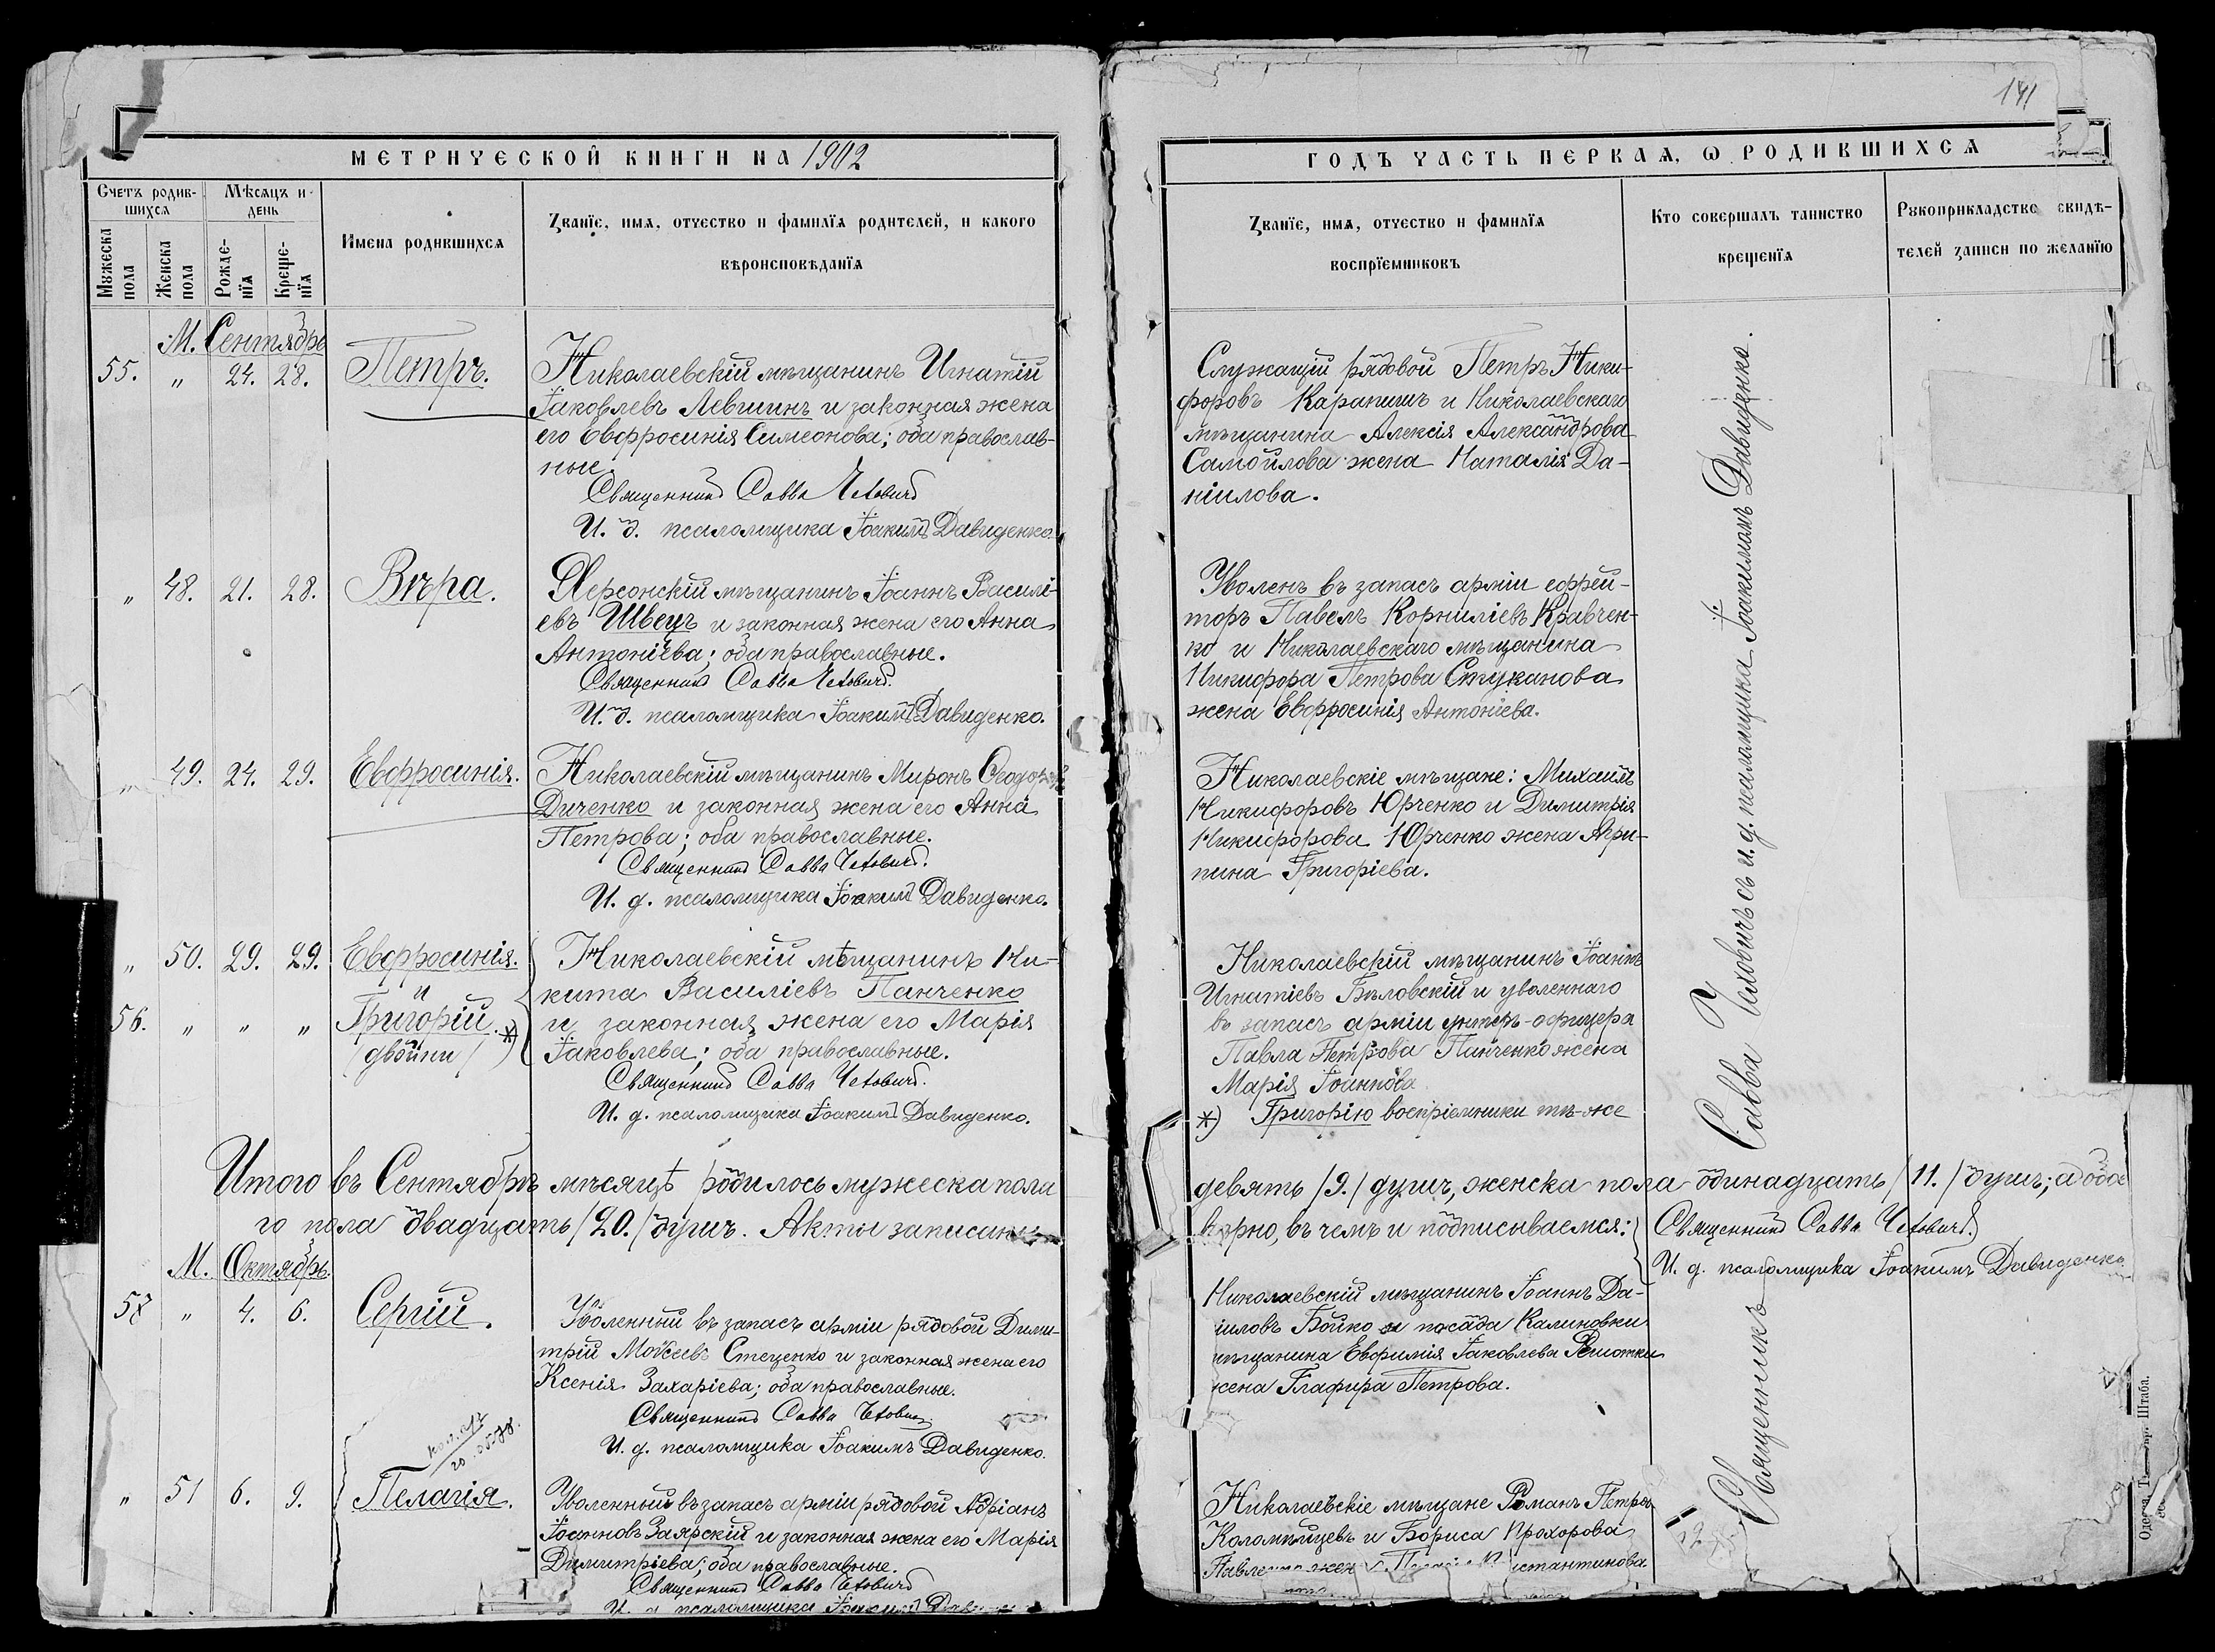 МЕТРИЧЕСКОЙ КНИГИ НА 1902
Счетъ родив-
шихся
Мѣсяцъ и
день
Мужеска
пола
Женска
пола
Рожде-
нїя
Креще-
нїя
Имена родившихся
Званїе, имя, отчество и фамилїя родителей, и какого
вѣроисповѣданїя
М. Сентябрь
55. " 24. 28. Петръ.
Николаевскій мѣщанинъ Игнатій
Іаковлевъ Левшинъ и законная жена
его Евфросинія Симеонова; оба православ-
ные.
Священникъ Савва
И. д. псаломщика Іоакимъ Давиденко.
" 48. 21. 28. Вѣра.
Херсонскій мѣщанинъ Іоаннъ Василі-
евъ Швецъ и законная жена его Анна
Антоніева; оба православные.
Священникъ Савва
И. д. псаломщика Іоакимъ Давиденко.
" 49. 24. 29. Евфросинія.
Николаевскій мѣщанинъ Миронъ Ѳеодоровъ
Диченко и законная жена его Анна
Петрова; оба православные.
Священникъ Савва
И. д. псаломщика Іоакимъ Давиденко.
" 50. 29. 29. Евфросинія.
и
56. " " " Григорій. *)
/двойни/
Николаевскій мѣщанинъ Ни-
кита Василіевъ Панченко
и законная жена его Марія
Іаковлева; оба православные.
Священникъ Савва
И. д. псаломщика Іоакимъ Давиденко.
Итого въ Сентябрѣ мѣсяцѣ родилось мужеска пола
го пола двадцать /20./ душъ. Акты записаны
М. Октябрь.
57 " 4. 6. Сергій.
Уволенный въ запасъ арміи рядовой Дими-
трій Моѵсеевъ Стеценко и законная жена его
Ксенія Захаріева; оба православные.
Священникъ Савва
И. д. псаломщика Іоакимъ Давиденко.
" 51 6. 9. Пелагія.
Уволенный въ запасъ арміи рядовой Адріанъ
Іоанновъ Заярскій и законная жена его Марія
Димитріева; оба православные.
Священникъ Савва
псаломщика Іоакимъ
141
ГОДЪ ЧАСТЬ ПЕРВАЯ, Ѡ РОДИВШИХСЯ
Званїе, имя, отчество и фамилїя
воспрїемниковъ
Кто совершалъ таинство
крещенїя
Рукоприкладство свидѣ-
телей записи по желанїю
Служащій рядовой Петръ Ники-
форовъ Карапишъ и Николаевскаго
мѣщанина Алексія Александрова
Самойлова жена Наталія Да-
ніилова.
Уволенъ въ запасъ арміи ефрей-
торъ Павелъ Корниліевъ Кравчен-
ко и Николаевскаго мѣщанина
Никифора Петрова Стуканова
жена Евфросинія Антоніева.
Николаевскіе мѣщане: Михаилъ
Никифоровъ Юрченко и Димитрія
Никифорова Юрченко жена Агри-
пина Григоріева.
Николаевскій мѣщанинъ Іоаннъ
Игнатіевъ Бѣловскій и уволеннаго
въ запасъ арміи унтеръ-офицера
Павла Петрова Панченко жена
Марія Іоаннова
*) Григорію воспріемники тѣ-же
девять /9./ душъ, женска пола одинадцать /11./ душъ; а обоe
вѣрно, въ чемъ и подписываемся: Священникъ Савва
И. д. псаломщика Іоакимъ Давиденко
Николаевскій мѣщанинъ Іоаннъ Да-
ніиловъ Бойко и посада Калиновки
мѣщанина Евфимія Іаковлева
жена Глафира Петрова.
Николаевскіе мѣщане Романъ Петровъ
Коломійцевъ и Бориса Прохорова
Священникъ Савва Человичъ съ и. д. псаломщика Іоакимомъ Давиденко.